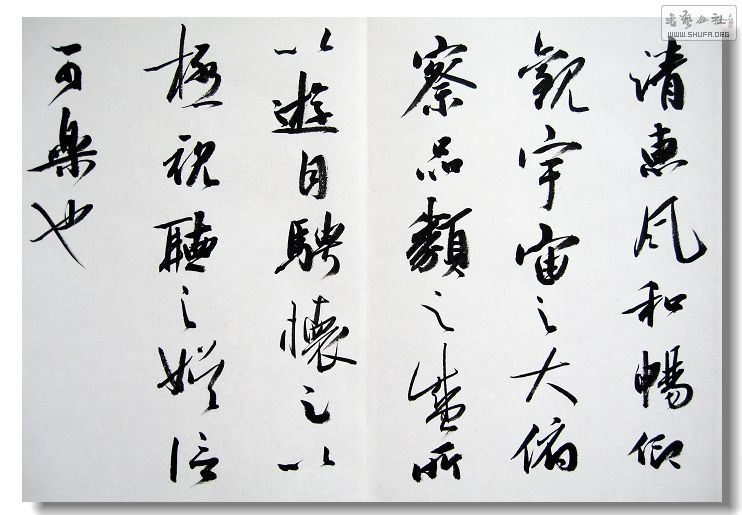 清惠風和暢仰
觀宇宙之大俯
察品類之盛所
以遊目騁懷足以
極視聽之娛信
可樂也
书艺公社
WWW.SHUFA.ORG